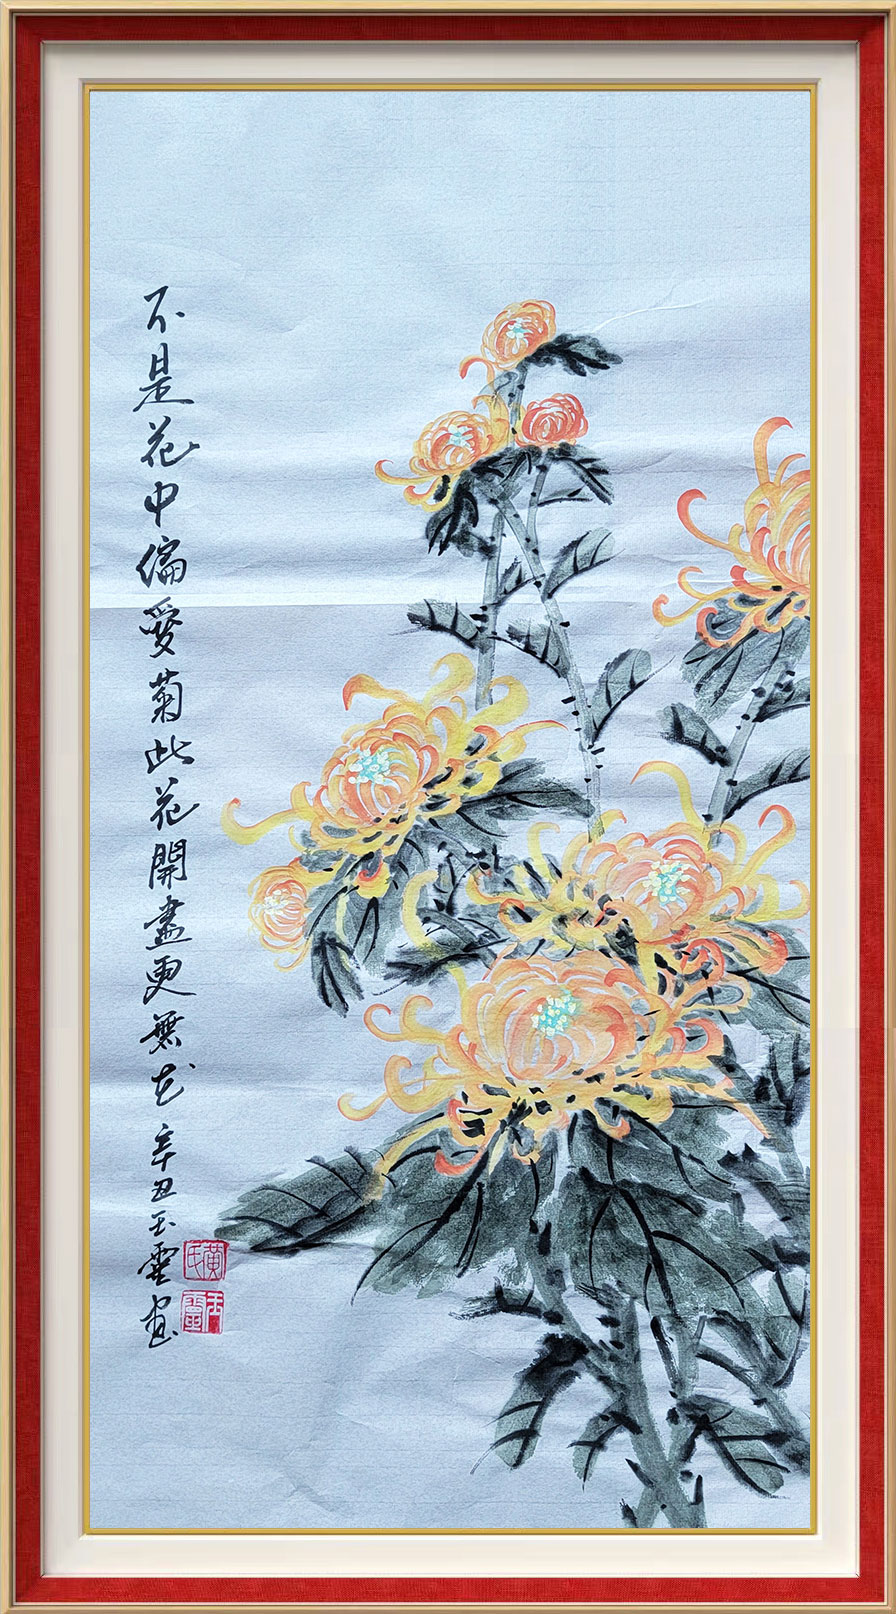 不是花中偏愛菊此花開盡更無花辛丑玉雲画
黃氏
玉雲